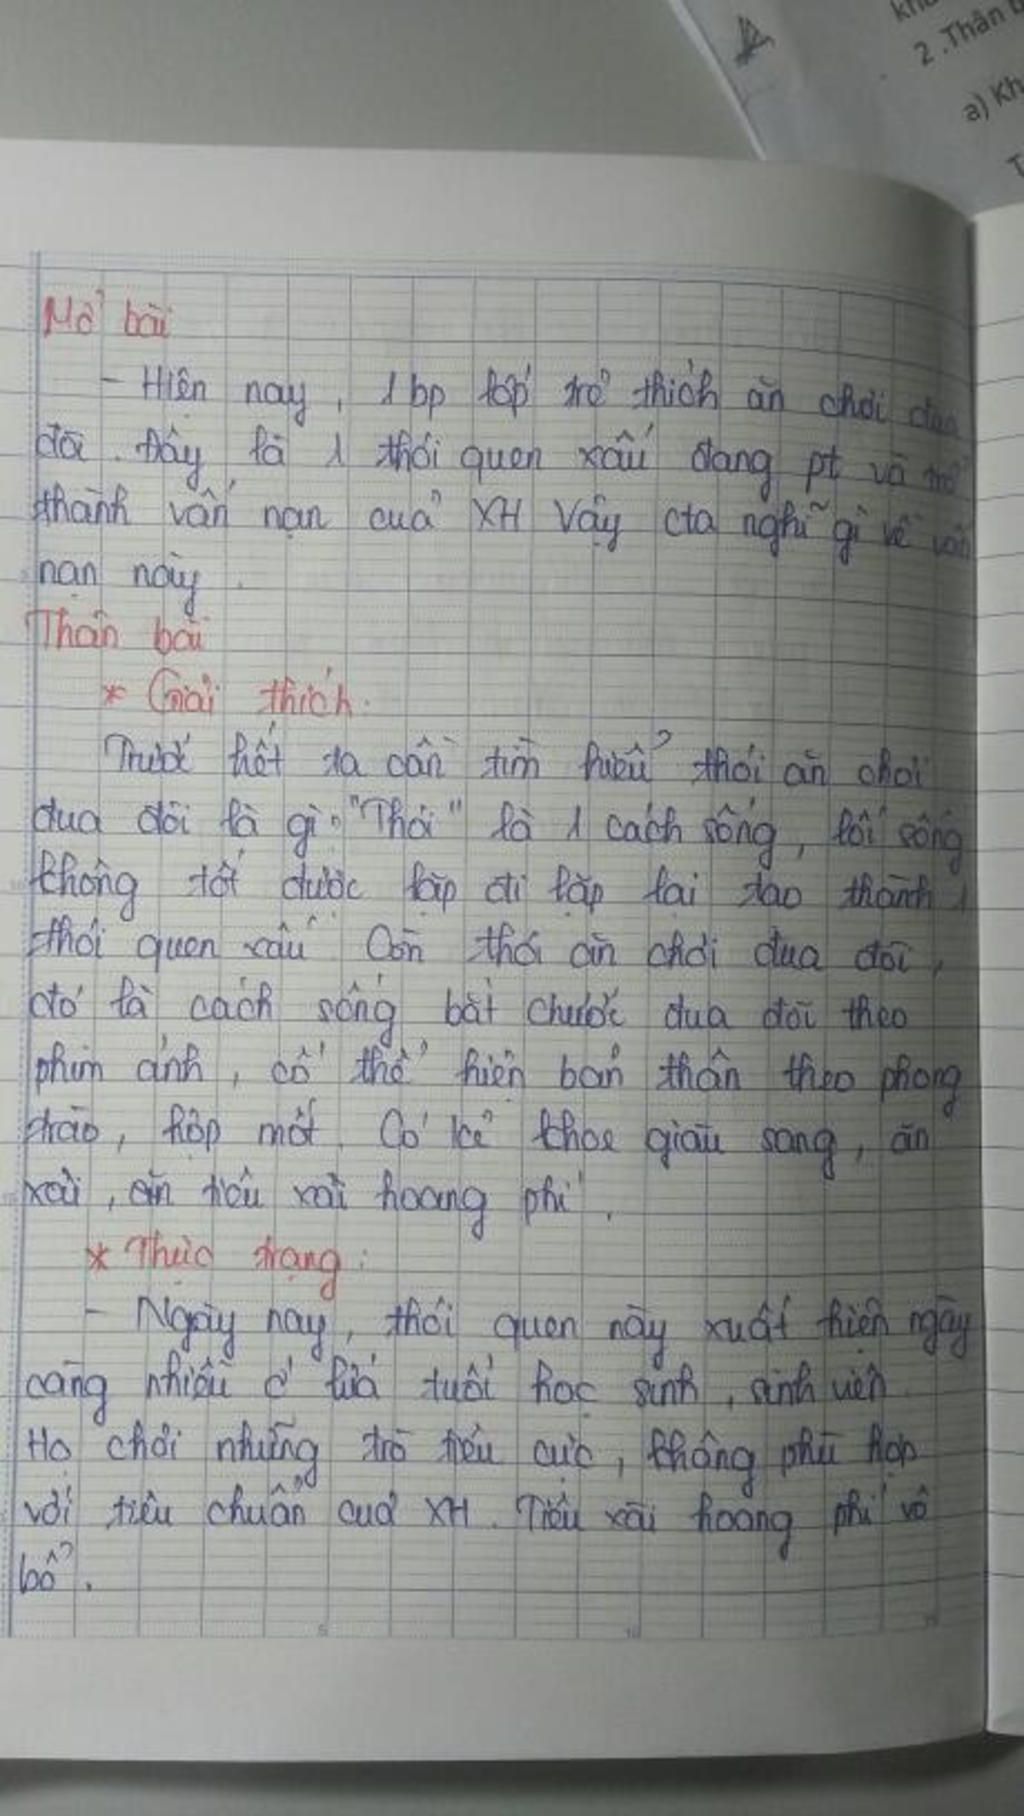 khu
2. Thân b
a) Kh
T
Mở bài
- Hiện nay, 1 bp lớp trẻ thích ăn chơi đua
đòi. Đây là 1 thói quen xấu đang pt và trở
thành vấn nạn của XH Vậy cta nghĩ gì về vấn
nạn này.
Thân bài
* Giải thích.
Trước hết ta cần tìm hiểu thói ăn chơi
đua đòi là gì? "Thói" là 1 cách sống, lối sống
không tốt được lặp đi lặp lại tạo thành 1
thói quen xấu Còn thói ăn chơi đua đòi,
đó là cách sống bắt chước đua đòi theo
phim ảnh, cố thể hiện bản thân theo phong
trào, hợp mốt. Có kẻ khoe giàu sang, ăn
xài, ăn tiêu xài hoang phí.
* Thực trạng:
- Ngày nay, thói quen này xuất hiện ngày
càng nhiều ở lứa tuổi học sinh, sinh viên
Họ chơi những trò tiêu cực, không phù hợp
với tiêu chuẩn của XH. Tiêu xài hoang phí vô
bổ.